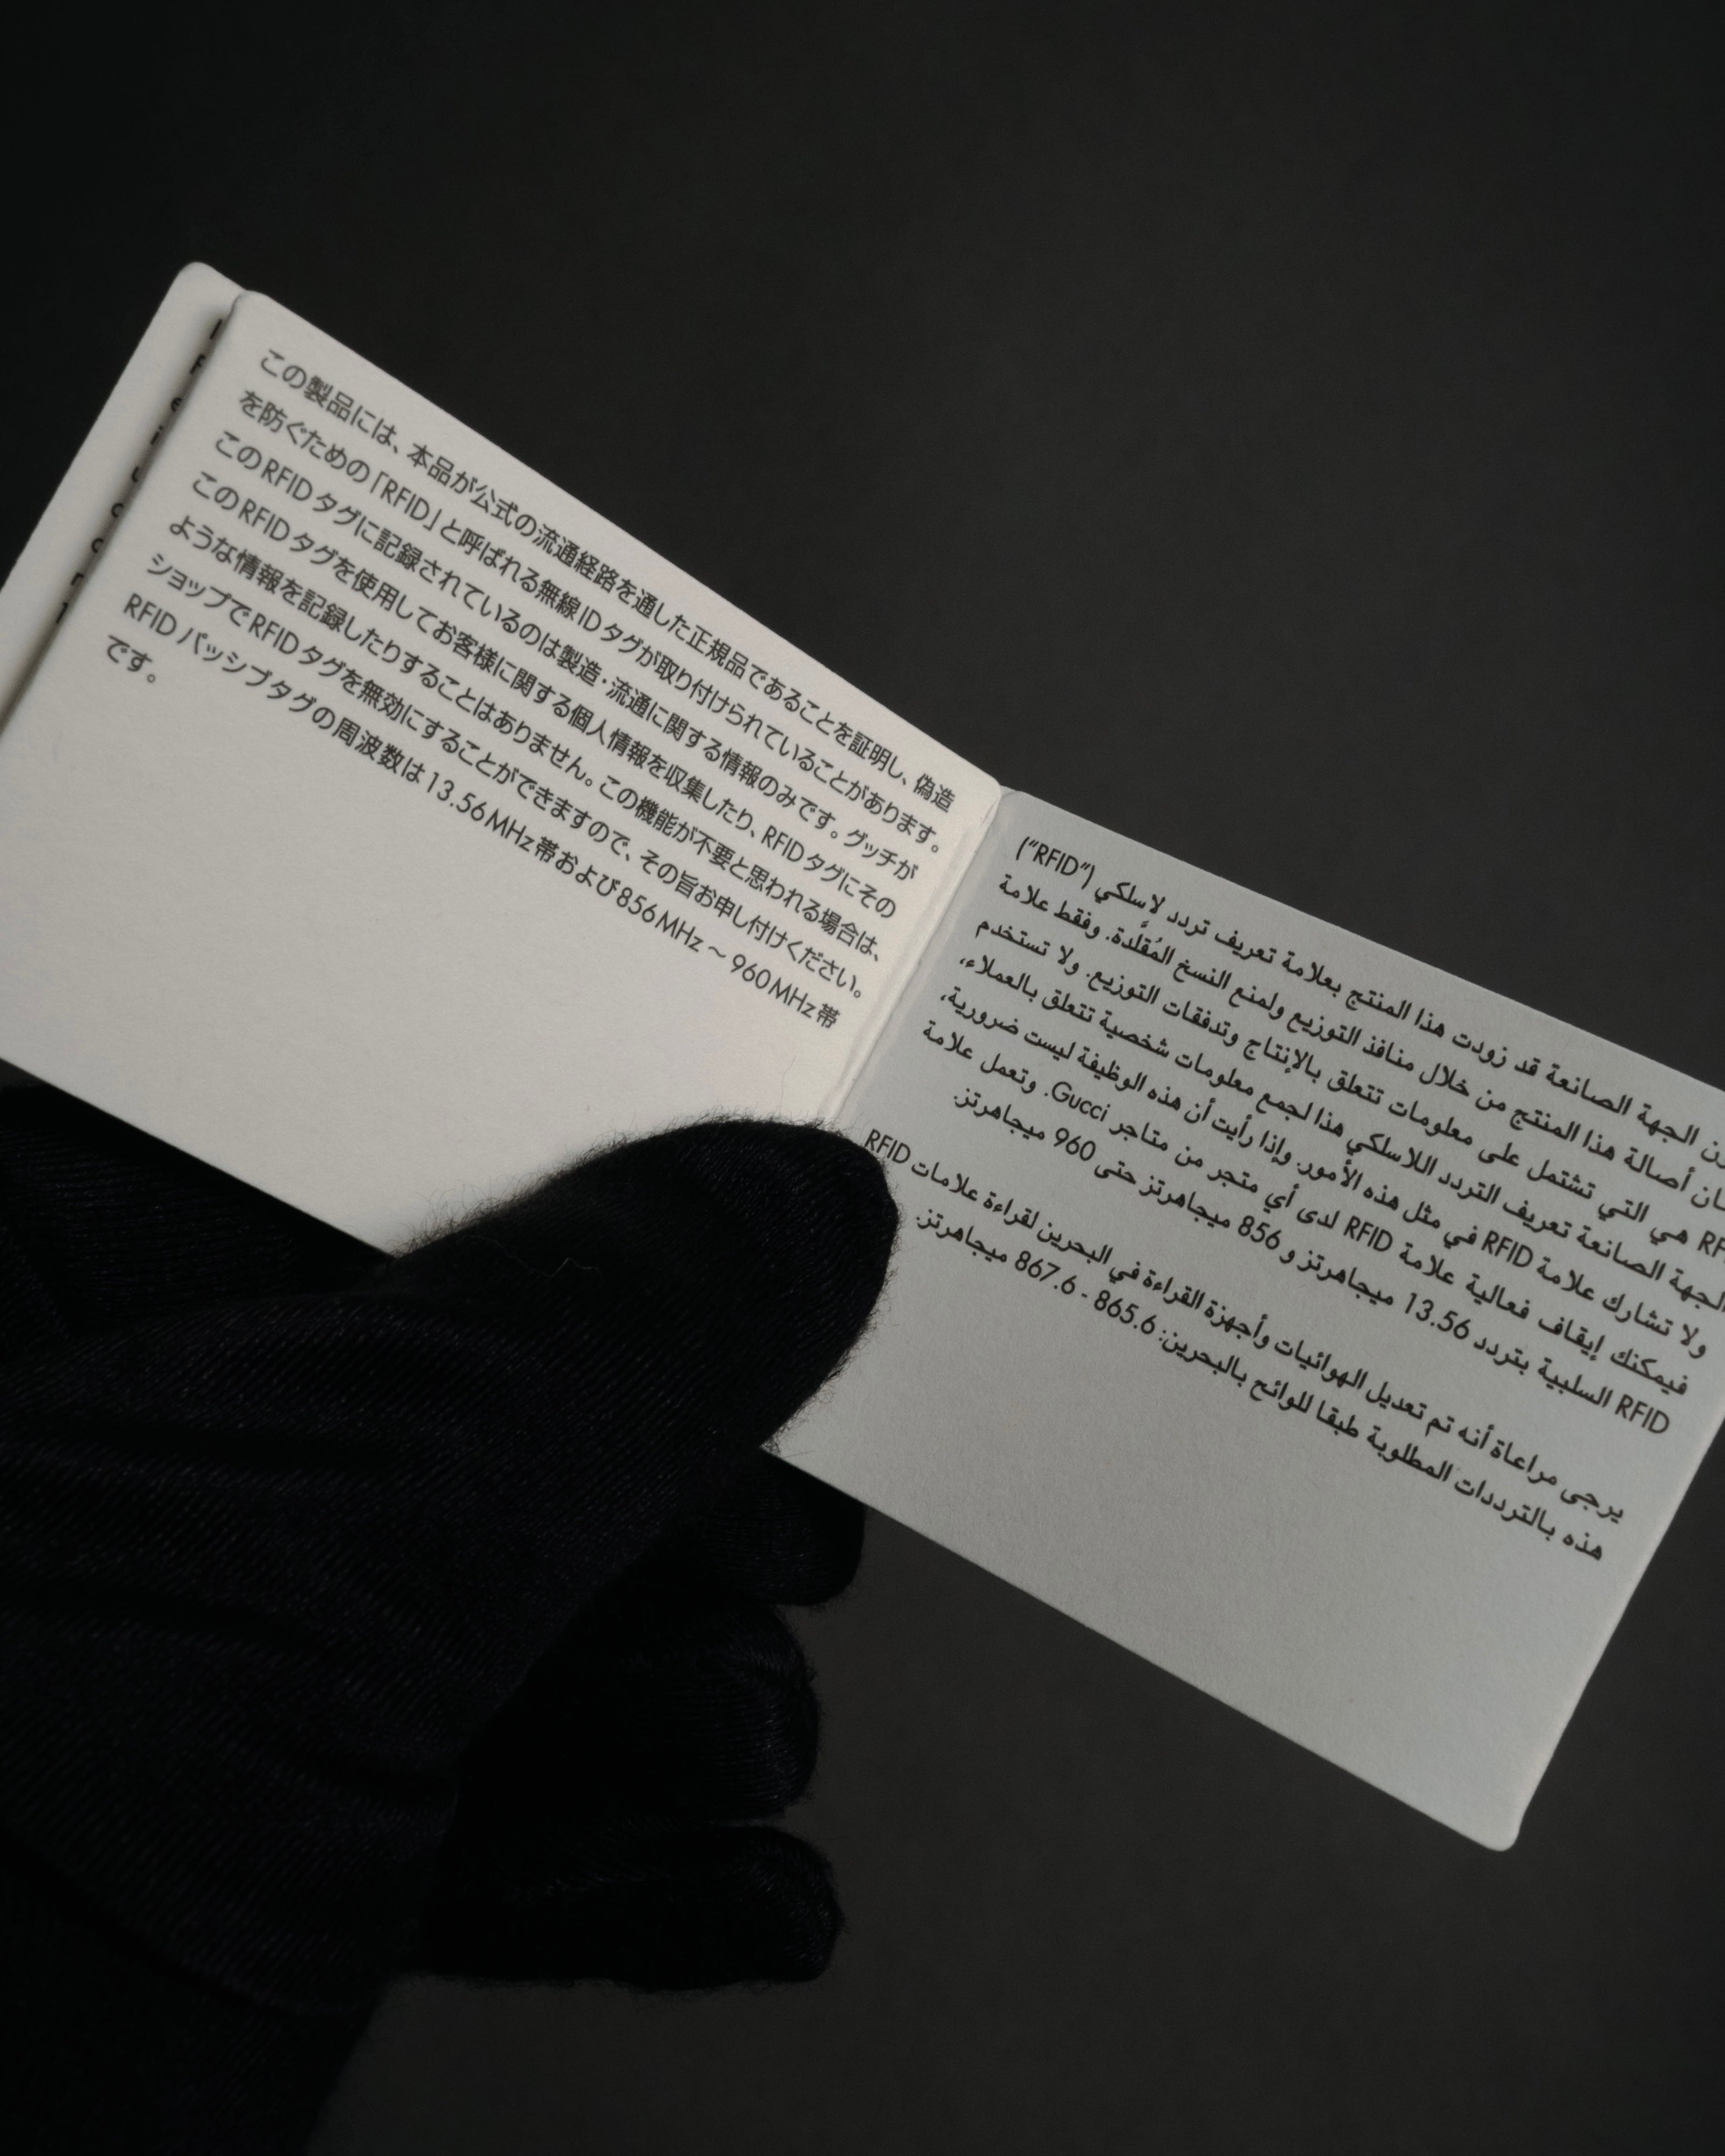 この製品には、本品が公式の流通経路を通した正規品であることを証明し、偽造
を防ぐための「RFID」と呼ばれる無線IDタグが取り付けられていることがあります。
このRFIDタグに記録されているのは製造・流通に関する情報のみです。グッチが
このRFIDタグを使用してお客様に関する個人情報を収集したり、RFIDタグにその
ような情報を記録したりすることはありません。この機能が不要と思われる場合は、
ショップでRFIDタグを無効にすることができますので、その旨お申し付けください。
RFIDパッシブタグの周波数は13.56MHz帯および856MHz～960MHz帯
です。
الجهة الصانعة قد زودت هذا المنتج بعلامة تعريف تردد لاسلكي ("RFID")
أصالة هذا المنتج من خلال منافذ التوزيع ولمنع النسخ المُقلَّدة. وفقط علامة
هي التي تشتمل على معلومات تتعلق بالإنتاج وتدفقات التوزيع. ولا تستخدم
الجهة الصانعة تعريف التردد اللاسلكي هذا لجمع معلومات شخصية تتعلق بالعملاء،
ولا تشارك علامة RFID في مثل هذه الأمور. وإذا رأيت أن هذه الوظيفة ليست ضرورية،
فيمكنك إيقاف فعالية علامة RFID لدى أي متجر من متاجر Gucci. وتعمل علامة
RFID السلبية بتردد 13.56 ميجاهرتز و 856 ميجاهرتز حتى 960 ميجاهرتز.
يرجى مراعاة أنه تم تعديل الهوائيات وأجهزة القراءة في البحرين لقراءة علامات RFID
هذه بالترددات المطلوبة طبقا للوائح بالبحرين: 865.6 - 867.6 ميجاهرتز.